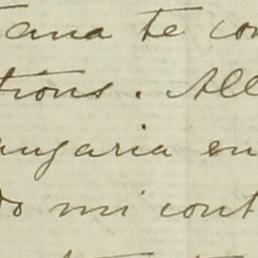 tana te con
tions. All
ungaria en
do mi cont